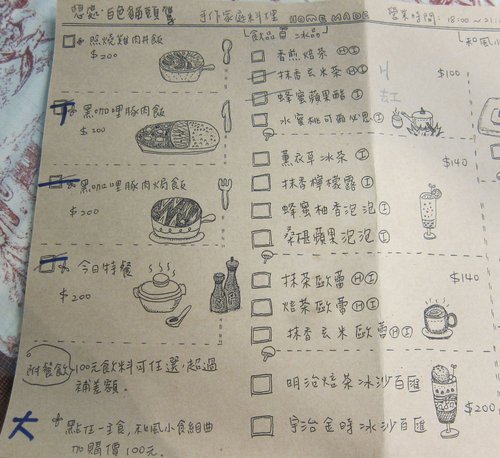 想您·白色貓頭鷹 手作家庭料理 HOME MADE 營業時間: 18:00~21
照燒雞肉丼飯
$200
黑咖哩豚肉飯
$200
黑咖哩豚肉焗飯
$200
今日特餐
$200
附餐飲 100元飲料可任選,超過
補差額.
點任一主食,和風小食組曲
加購價100元.
飲品 冰品
香煎焙茶 H I
抹香玄米茶 H I
蜂蜜蘋果醋 I
水蜜桃可爾必思 I
$100
薰衣草冰茶 I
抹香檸檬露 I
蜂蜜柚香泡泡 I
桑椹蘋果泡泡 I
$140
抹茶歐蕾 H I
焙茶歐蕾 H I
抹香玄米歐蕾 H I
$140
明治焙茶冰沙百匯
宇治金時冰沙百匯
$200
和風小